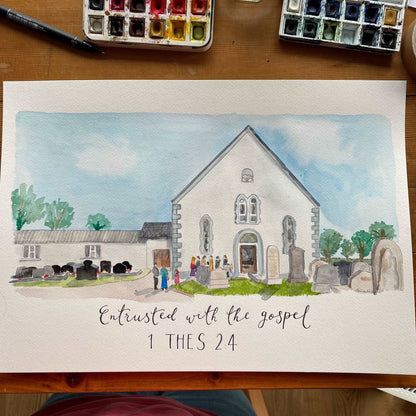 Entrusted with the gospel
1 THES 2 4